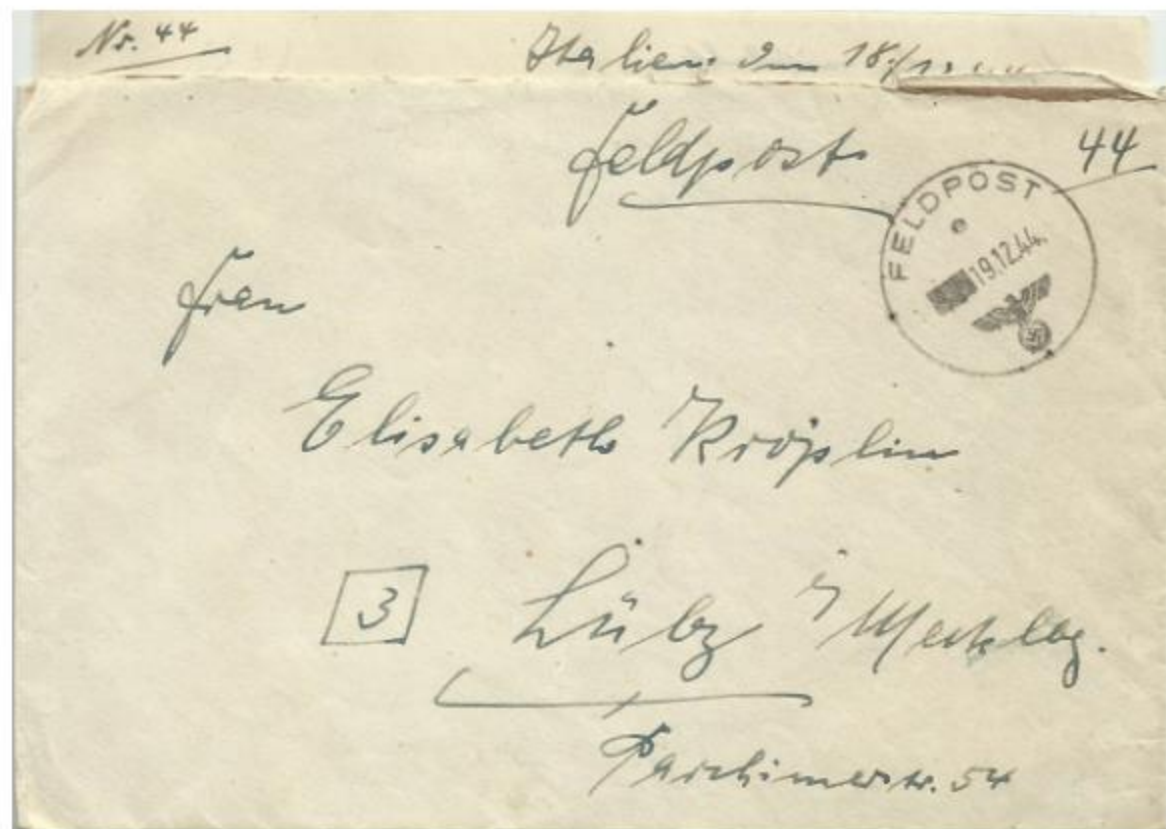 Nr. 44
Italien, den 18./12.
Feldpost
44
FELDPOST
19.12.44.
Frau
Elisabeth Kröplin
3
Lübz i/Mecklbg.
Parchimerstr. 54